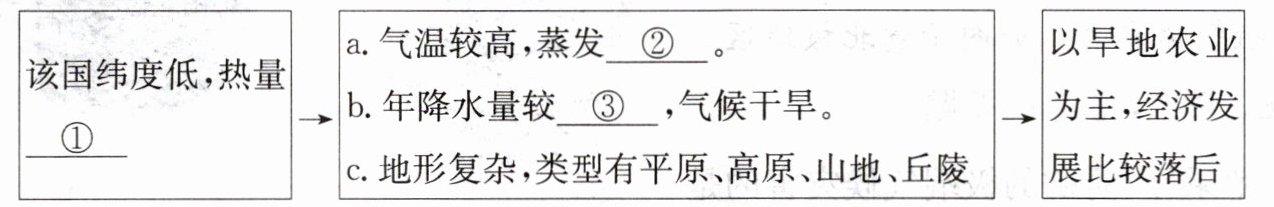 该国纬度低,热量
①
a. 气温较高,蒸发 ② 。
b. 年降水量较 ③ ,气候干旱。
c. 地形复杂,类型有平原、高原、山地、丘陵
以旱地农业
为主,经济发
展比较落后